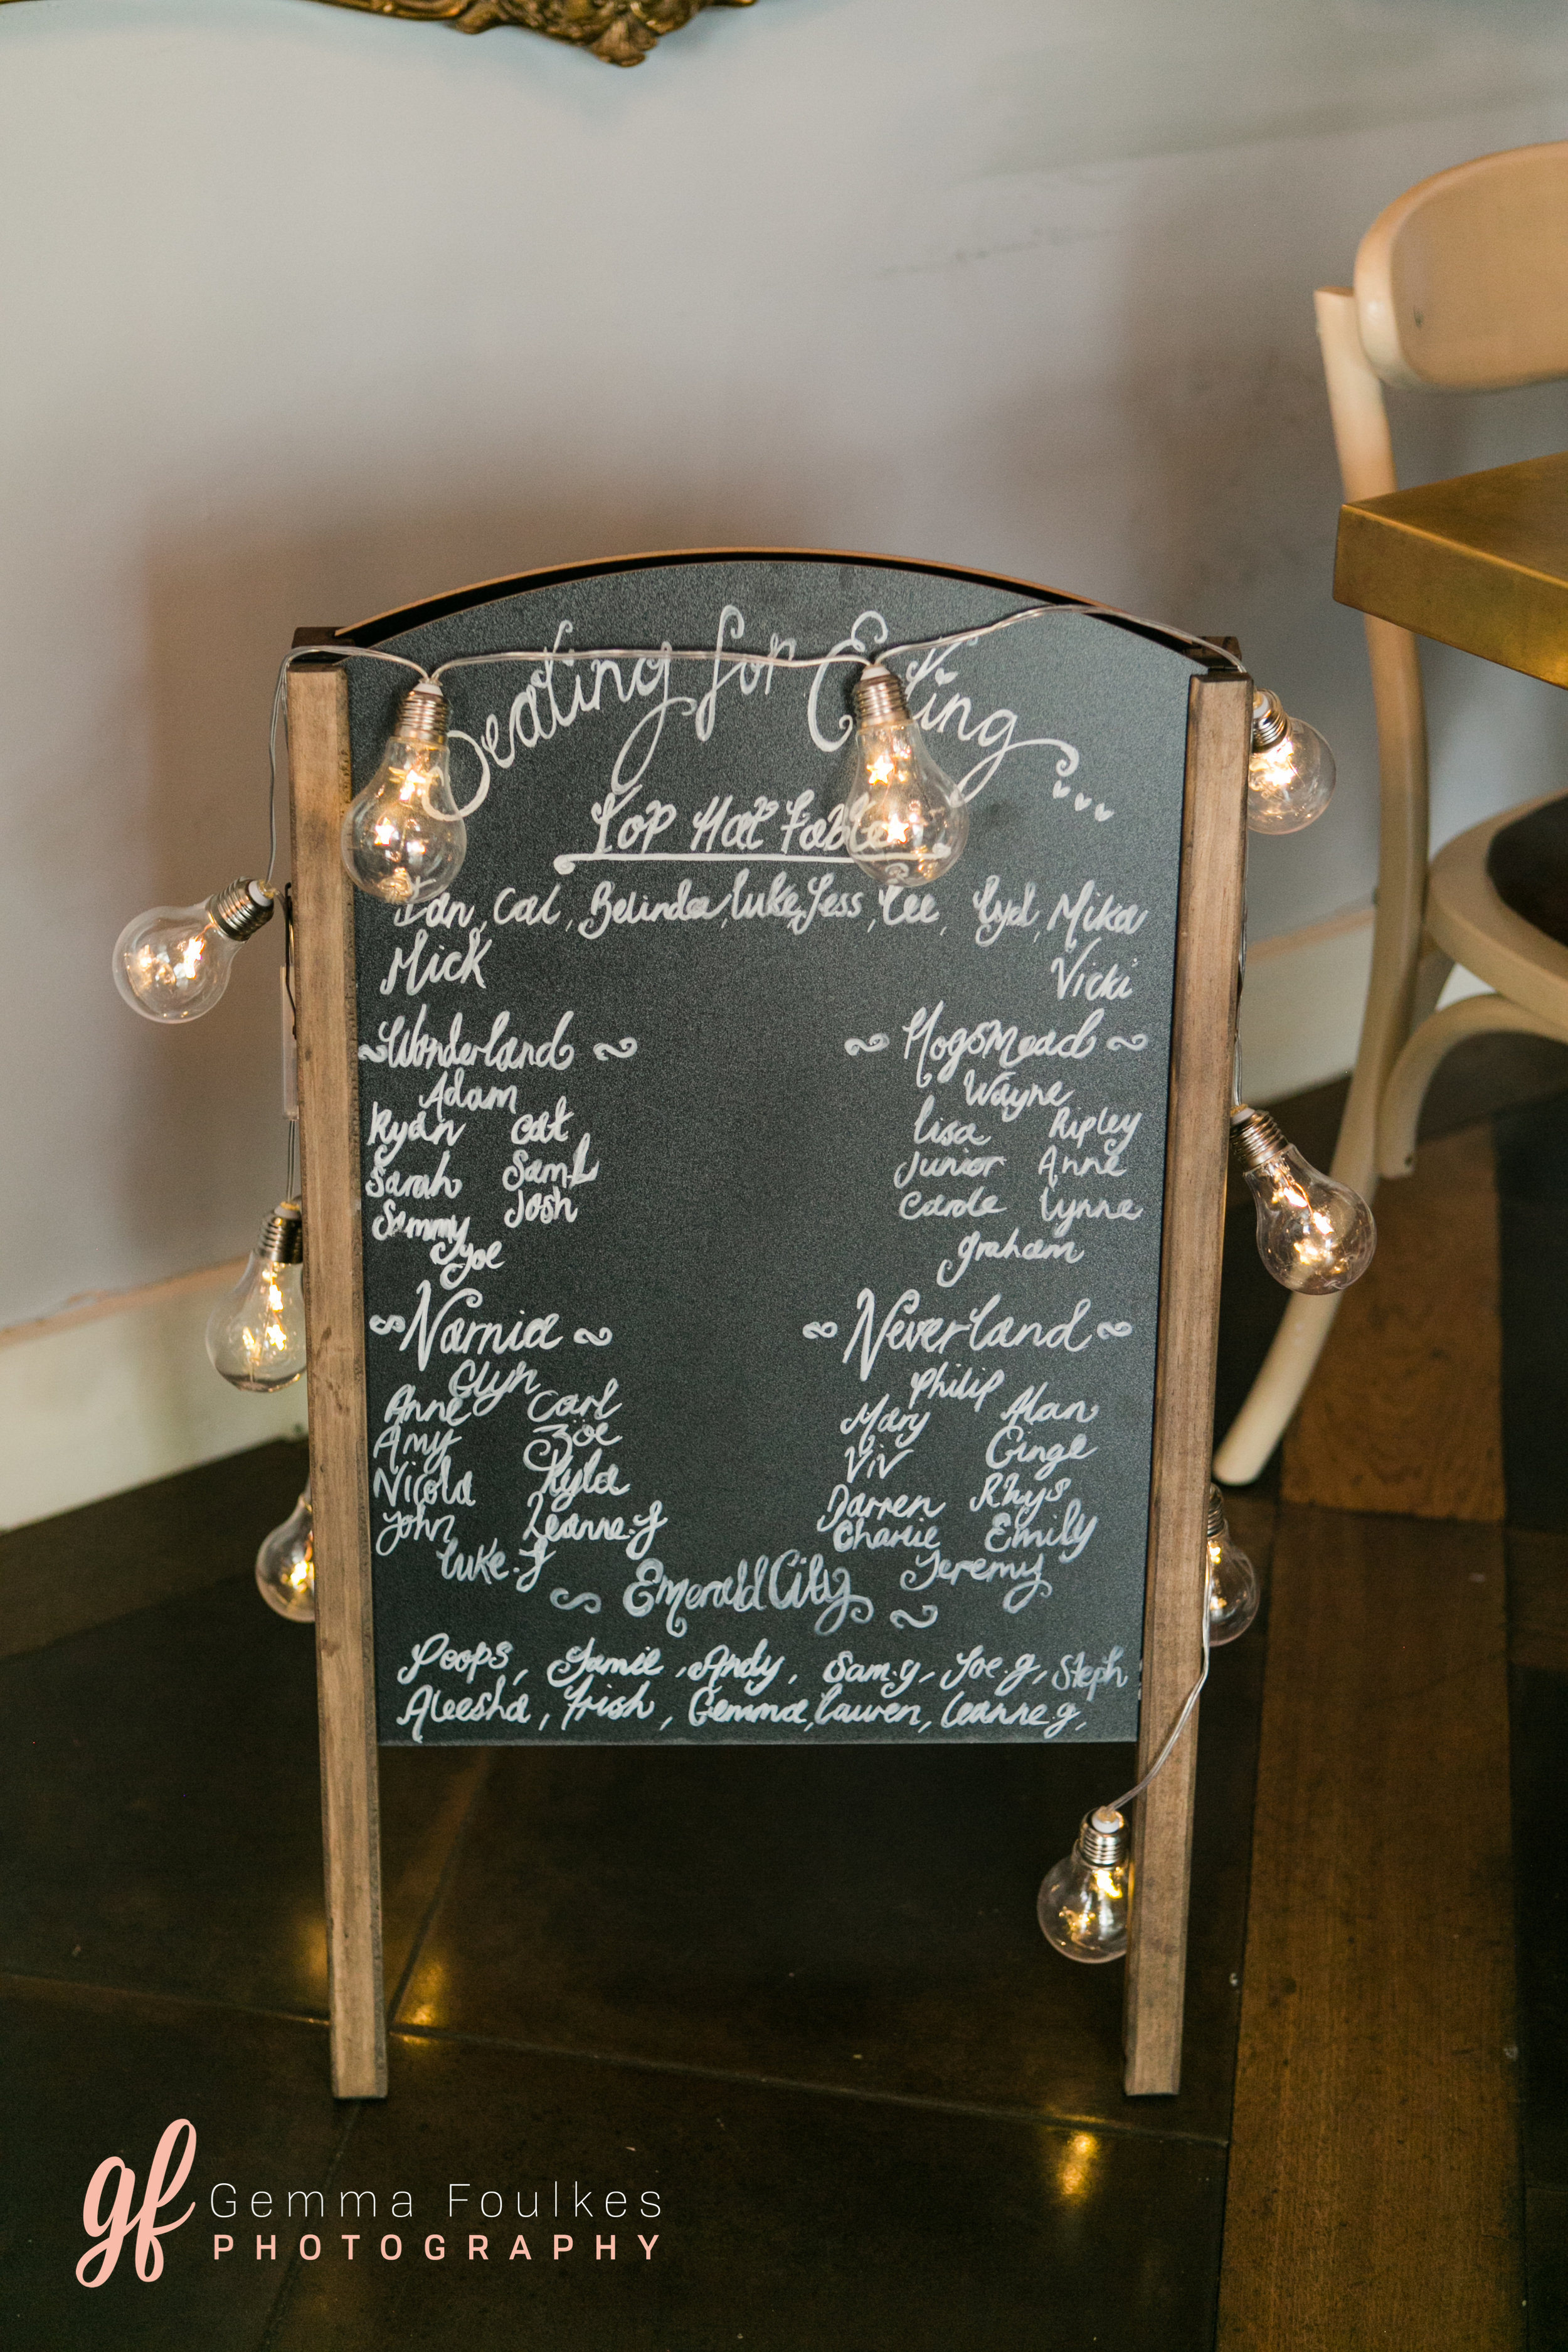 Seating for Eating...
Top Hat Table
Dan, Cal, Belinda, Luke, Jess, Lee, Lyd, Mika
Mick Vicki
Wonderland
Adam
Ryan Cat
Sarah Sam.L
Sammy Josh
Joe
Hogsmead
Wayne
Lisa Ripley
Junior Anne
Carole Lynne
Graham
Narnia
Glyn
Anne Carl
Amy Zöe
Nicola Kyla
John Leanne.J
Luke.J
Neverland
Philip
Mary Alan
Viv Ginge
Darren Rhys
Charlie Emily
Jeremy
Emerald City
Poops, Jamie, Andy, Sam.g, Joe.g, Steph
Aleesha, Trish, Gemma, Lauren, Leanne.g,
gf
Gemma Foulkes
PHOTOGRAPHY